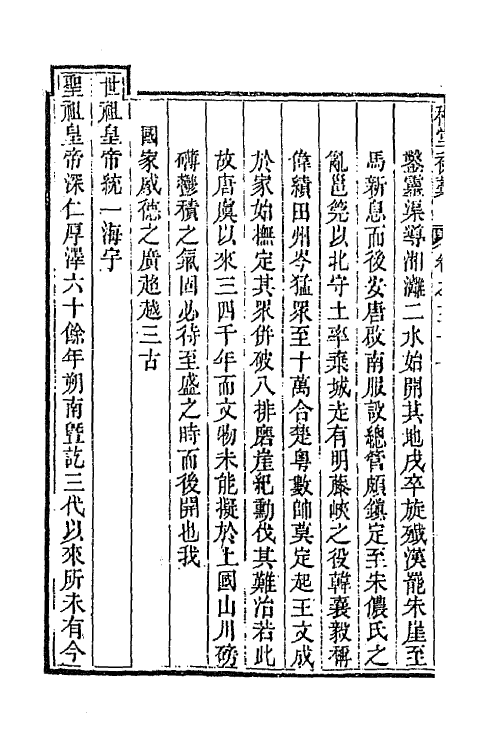 鑿靈渠導湘灕二水始開其地戌卒旋殱漢罷朱崖至
馬新息而後安唐啟南服設總管頗鎮定至朱儂氏之
亂邕筦以北守土率棄城走有明藤峽之役韓襄毅稱
偉績田州岑猛眾至十萬合楚粵數帥莫定起王文成
於家始撫定其眾併破八排磨崖紀勳伐其難冶若此
故唐虞以來三四千年而文物未能擬於上國山川磅
礴鬱積之氣固必待至盛之時而後開也我
國家威德之廣超越三古
世祖皇帝統一海宇
聖祖皇帝深仁厚澤六十餘年朔南曁訖三代以來所未有今